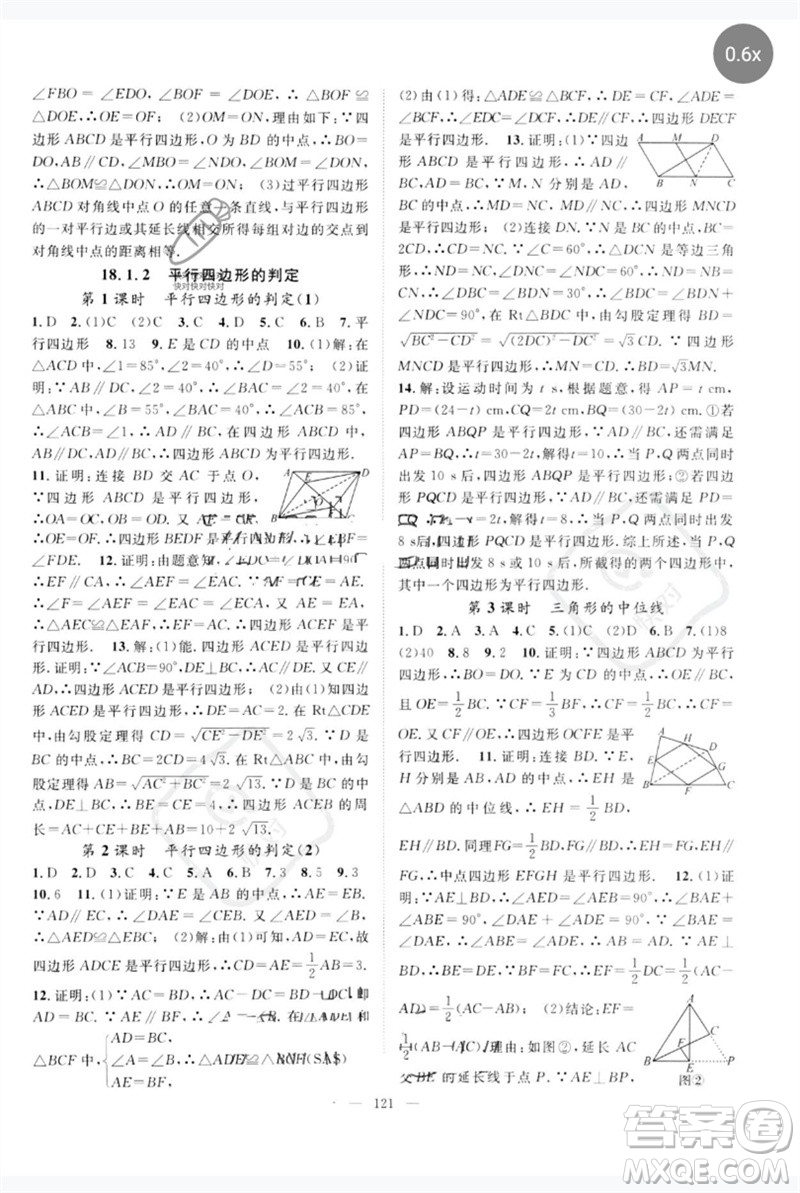 0.6x
∠FBO=∠EDO,∠BOF=∠DOF,∴△BOF≌
△DOE,∴OE=OF; (2)OM=ON.理由如下:∵四
边形 ABCD 是平行四边形,O 为 BD 的中点,∴BO=
DO,AD∥BC,∴∠MBO=∠NDO,∠BOM=∠DON,
∴△BOM≌△DON,∴OM=ON; (3)过平行四边形
ABCD 对角线中点 O 的任意一条直线,与平行四边形
的一对平行边或其延长线相交所得每组对边的交点到
对角线中点的距离相等.
18.1.2 平行四边形的判定
快对快对快对
第 1 课时 平行四边形的判定(1)
1.D 2.(1)C (2)C 3.A 4.D 5.C 6.B 7.平
行四边形 8.13 9.E 是 CD 的中点 10.(1)解:在
△ACD 中,∠1=85°,∠2=40°,∴∠D=55°; (2)证
明:∵AB∥DC,∠2=40°,∴∠BAC=∠2=40°,在
△ABC 中,∠B=55°,∠BAC=40°,∴∠ACB=85°
=∠1,∴AD∥BC,在四边形 ABCD 中,
AB∥DC,AD∥BC,∴四边形 ABCD 是平行四边形.
11.证明:连接 BD 交 AC 于点 O,
∵四边形 ABCD 是平行四边形,
∴OA=OC,OB=OD.又
∴OE=OF.∴四边形BEDF是
∠FDE. 12.证明:由题意知,
∴EF∥CA,∴∠AEF=∠EAC.∵
∴∠F=∠AEF=∠EAC=∠ECA.又∵AE=EA,
∴△AEC≌△EAF,∴EF=AC,∴四边形 ACEF 是平
行四边形. 13.解:(1)能.四边形 ACED 是平行四边
形.证明:∵∠ACB=90°,DE⊥BC,∴AC∥DE.又
∵AD∥CE,∴四边形 ACED 是平行四边形;
四边形 ACED 是平行四边形;(2)由(1)知四边形
ACED 是平行四边形,∴DE=AC=2.在 Rt△CDE
中,由勾股定理得 CD=√(CE²−DE²)=2√3.∵D 是
BC 的中点,∴BC=2CD=4√3.在 Rt△ABC 中,由勾
股定理得 AB=√(AC²+BC²)=2√13.∵D 是 BC 的中
点,DE⊥BC,∴BE=CE=4.∴四边形 ACEB 的周
长=AC+CE+BE+AB=10+2√13.
第 2 课时 平行四边形的判定(2)
1.D 2.D 3.C 4.C 5.A 6.B 7.B 8.5 9.3
10.6 11.(1)证明:∵E 是 AB 的中点,∴AE=EB.
∵AD∥EC,∴∠A=∠CEB.又∵∠AED=∠B,
∴△AED≌△EBC; (2)解:由(1)可知,AD=EC,故
四边形 ADCE 是平行四边形,∴CD=AE=1/2AB=3.
12.证明:(1)∵AC=BD,∴AC−DC=BD−
AD=BC.∵AE∥BF,∴ 在△ADE 和
△BCF 中,{AD=BC,
∠A=∠B,∴
AE=BF
(2)由(1)得:△ADE≌△BCF,∴DE=CF,∠ADE=
∠BCF,∴∠EDC=∠FCD,∴DE∥CF,∴四边形 DECF
是平行四边形. 13.证明:(1)∵四
边形 ABCD 是平行四边形,∴AD∥
BC,AD=BC.∵M,N 分别是 AD,
BC 的中点,∴MD=NC,MD∥
NC,∴四边形 MNCD 是平行四边
形; (2)连接 DN.∵N 是 BC 的中点,∴BC=2CN.∵BC=
2CD,∠C=60°,∴△DCN 是等边三角
形,∴ND=NC,∠DNC=∠NDC=60°,∴ND=NB=
CN,∴∠DBC=∠BDN=30°,∴∠BDC=∠BDN+
∠NDC=90°.在 Rt△BDC 中,由勾股定理得 BD=
√(BC²−CD²)=√((2DC)²−DC²)=√3DC.∵四边形
MNCD 是平行四边形,∴MN=DC,∴BD=√3MN.
14.解:设运动时间为 t s,根据题意,得 AP=t cm,
PD=(24−t)cm,CQ=2t cm,BQ=(30−2t)cm.①若
四边形 ABQP 是平行四边形,∵AD∥BC,∴还需满足
AP=BQ,∴t=30−2t.解得 t=10,∴当 P,Q 两点同时
出发 10 s后,四边形 ABQP 是平行四边形;②若四边
形 PQCD 是平行四边形,∵AD∥BC,∴还需满足 PD=
解得 t=8,∴当 P,Q 两点同时出发
8 s后,四边形 PQCD 是平行四边形.综上所述,当 P,Q
两点同时出发 8 s或 10 s后,所截得的两个四边形中,
其中一个四边形为平行四边形.
第 3 课时 三角形的中位线
1.D 2.A 3.A 4.C 5.(2,0) 6.B 7.(1)8
(2)40 8.8 9.2 10.证明:∵四边形 ABCD 是平行
四边形,∴BO=DO.又∵E 为 CD 中点,∴OE∥BC,
且 OE=1/2BC.∵CF=1/3BF,∴CF=1/2BC,∴CF=
OE.又∵OE∥CF,∴四边形 OCFE 是平
行四边形. 11.证明:连接 BD.∵E,
H 分别是 AB,AD 的中点,∴EH 是
△ABD 的中位线,∴EH=1/2BD,
EH∥BD.同理FG=1/2BD,FG∥BD,∴EH=FG,EH
∥FG,∴中点四边形 EFGH 是平行四边形. 12.(1)证
明:∵AE⊥BE,∴∠AED=∠AEB=90°,∴∠BAE+
∠ABE=90°,∠DAE+∠ADE=90°.∵∠BAE=
∠DAE,∴∠ABE=∠ADE,∴AB=AD.∵AE⊥BD,
∴BE=DE.∵BF=FC,∴EF=1/2DC=1/2(AC−
AD)=1/2(AC−AB); (2)结论:EF=
1/2(AB−AC),理由:如图②,延长 AC
交 BE 的延长线于点 P.∵AE⊥BP,
图②
121
答案圈
MXQE.COM